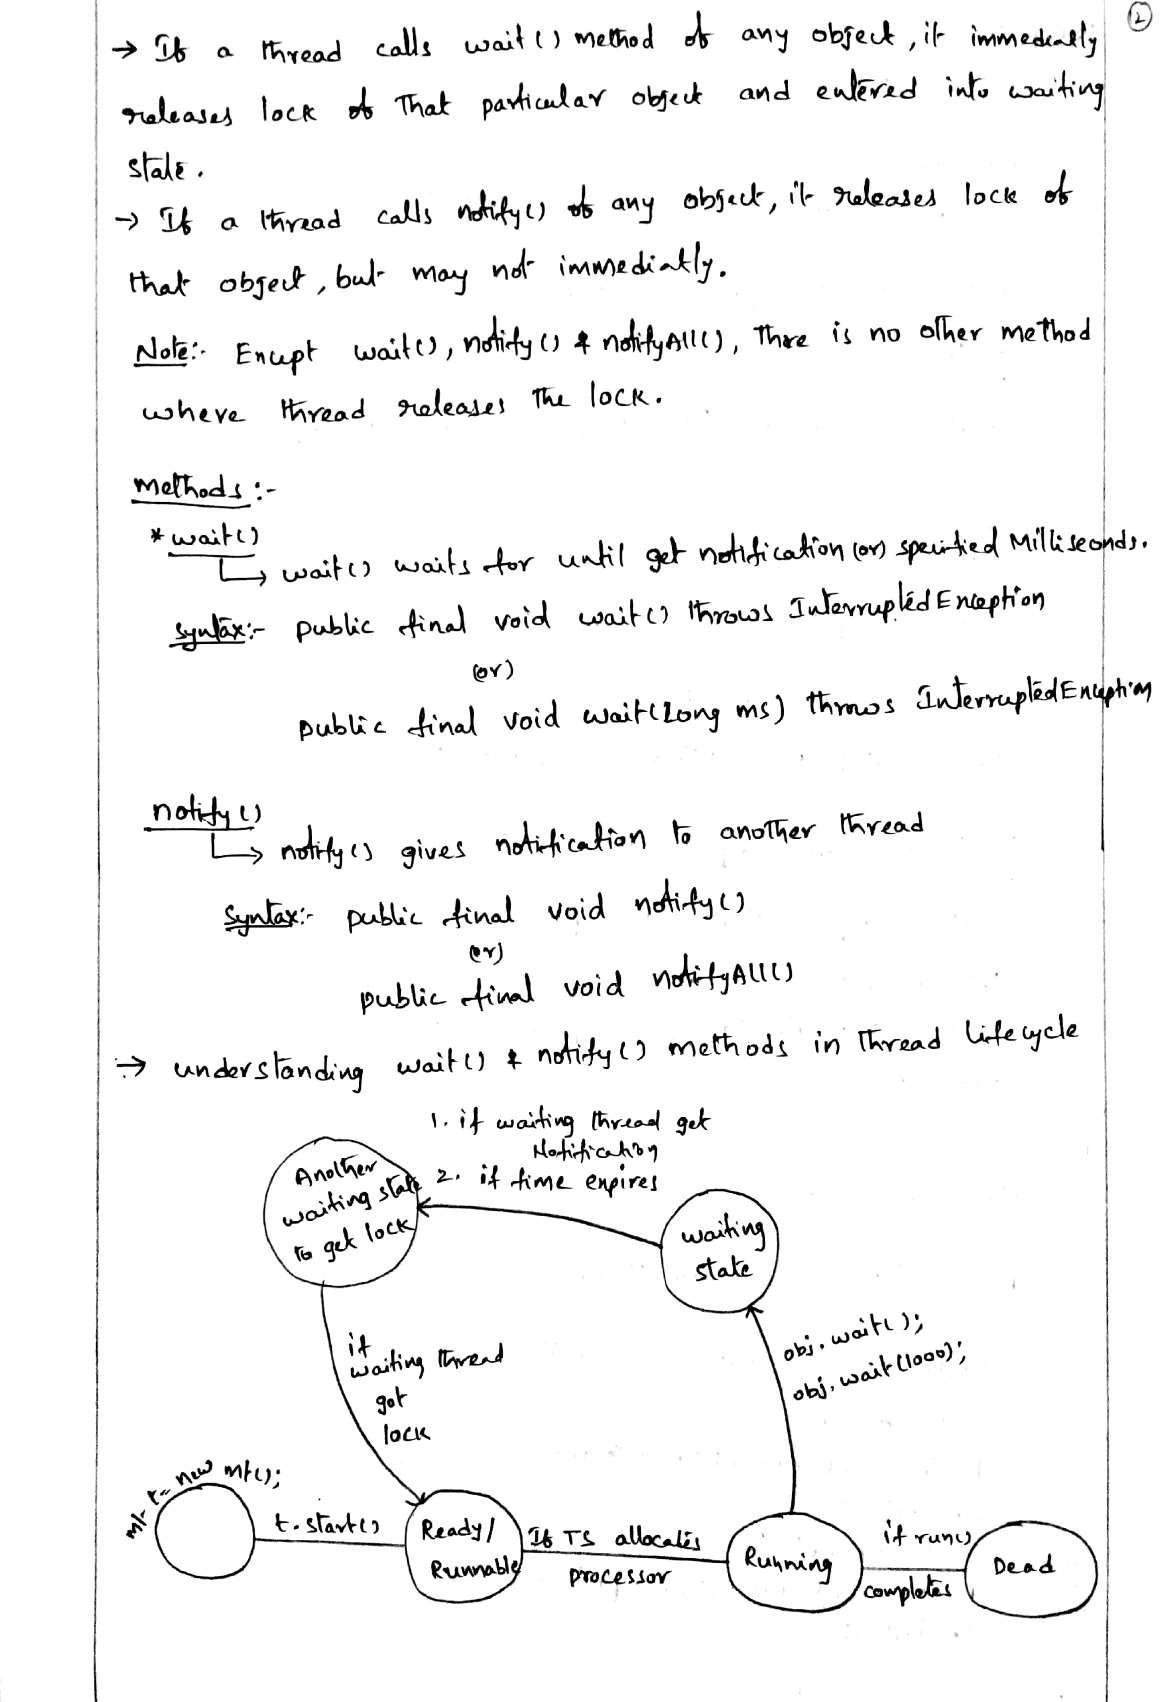 2
→ If a thread calls wait() method of any object, it immediately
releases lock of That particular object and entered into waiting
state.
→ If a thread calls notify() of any object, it releases lock of
that object, but may not immediatly.
Note:- Except wait(), notify() & notifyAll(), Thre is no other method
where thread releases The lock.
Methods :-
* wait()
↳ wait() waits for until get notification (or) specified Milliseconds.
Syntax:- public final void wait() throws InterruptedException
(or)
public final void wait(Long ms) throws InterruptedException
notify()
↳ notify() gives notification to another thread
Syntax:- public final void notify()
(or)
public final void notifyAll()
→ understanding wait() & notify() methods in Thread lifecycle
1. if waiting thread get
Notification
2. if time expires
Another
waiting state
to get lock
waiting
state
obj.wait();
obj.wait(1000);
if
waiting thread
got
lock
mt t= new mt();
t.start()
Ready/
Runnable
If TS allocates
processor
Running
if run()
completes
Dead